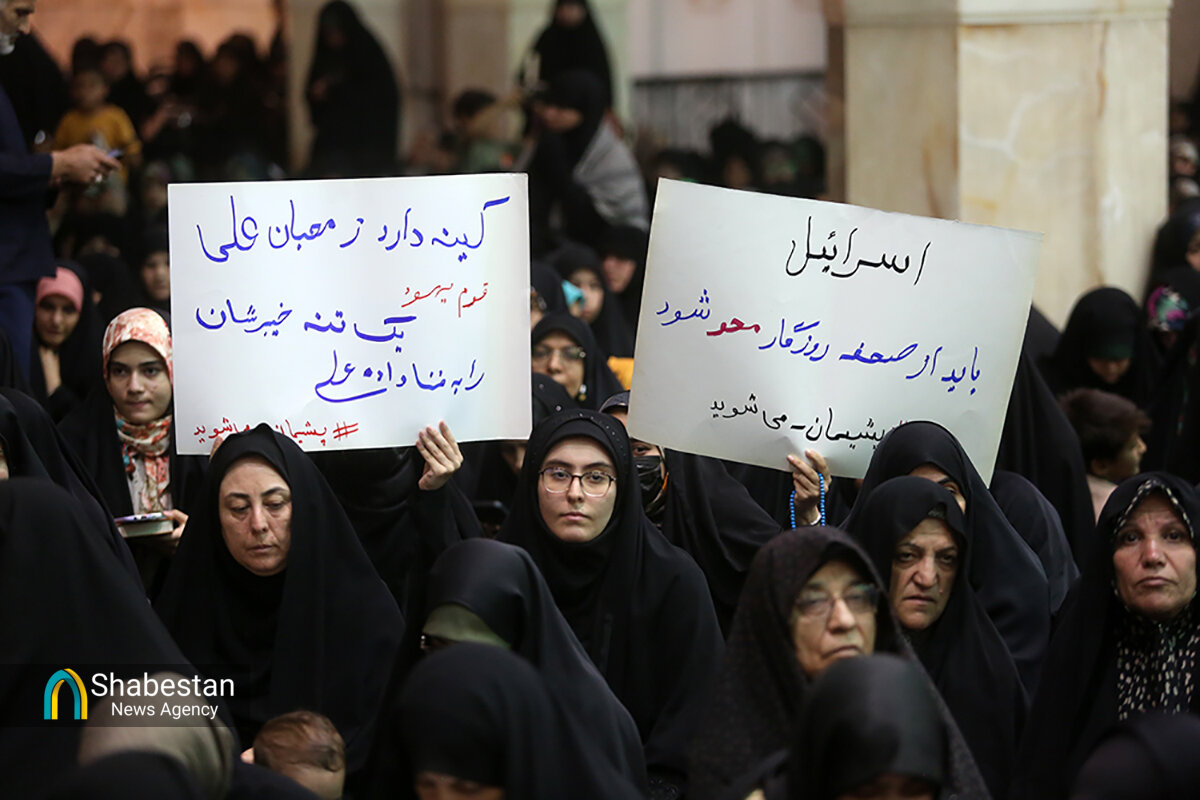 کینه دارد ز محبان علی
قوم یهود
یک تنه خیبرشان
را به فنا داده علی
#پشیمان_می شوید
اسرائیل
باید از صفحه روزگار محو شود
#پشیمان-می شوید
Shabestan
News Agency